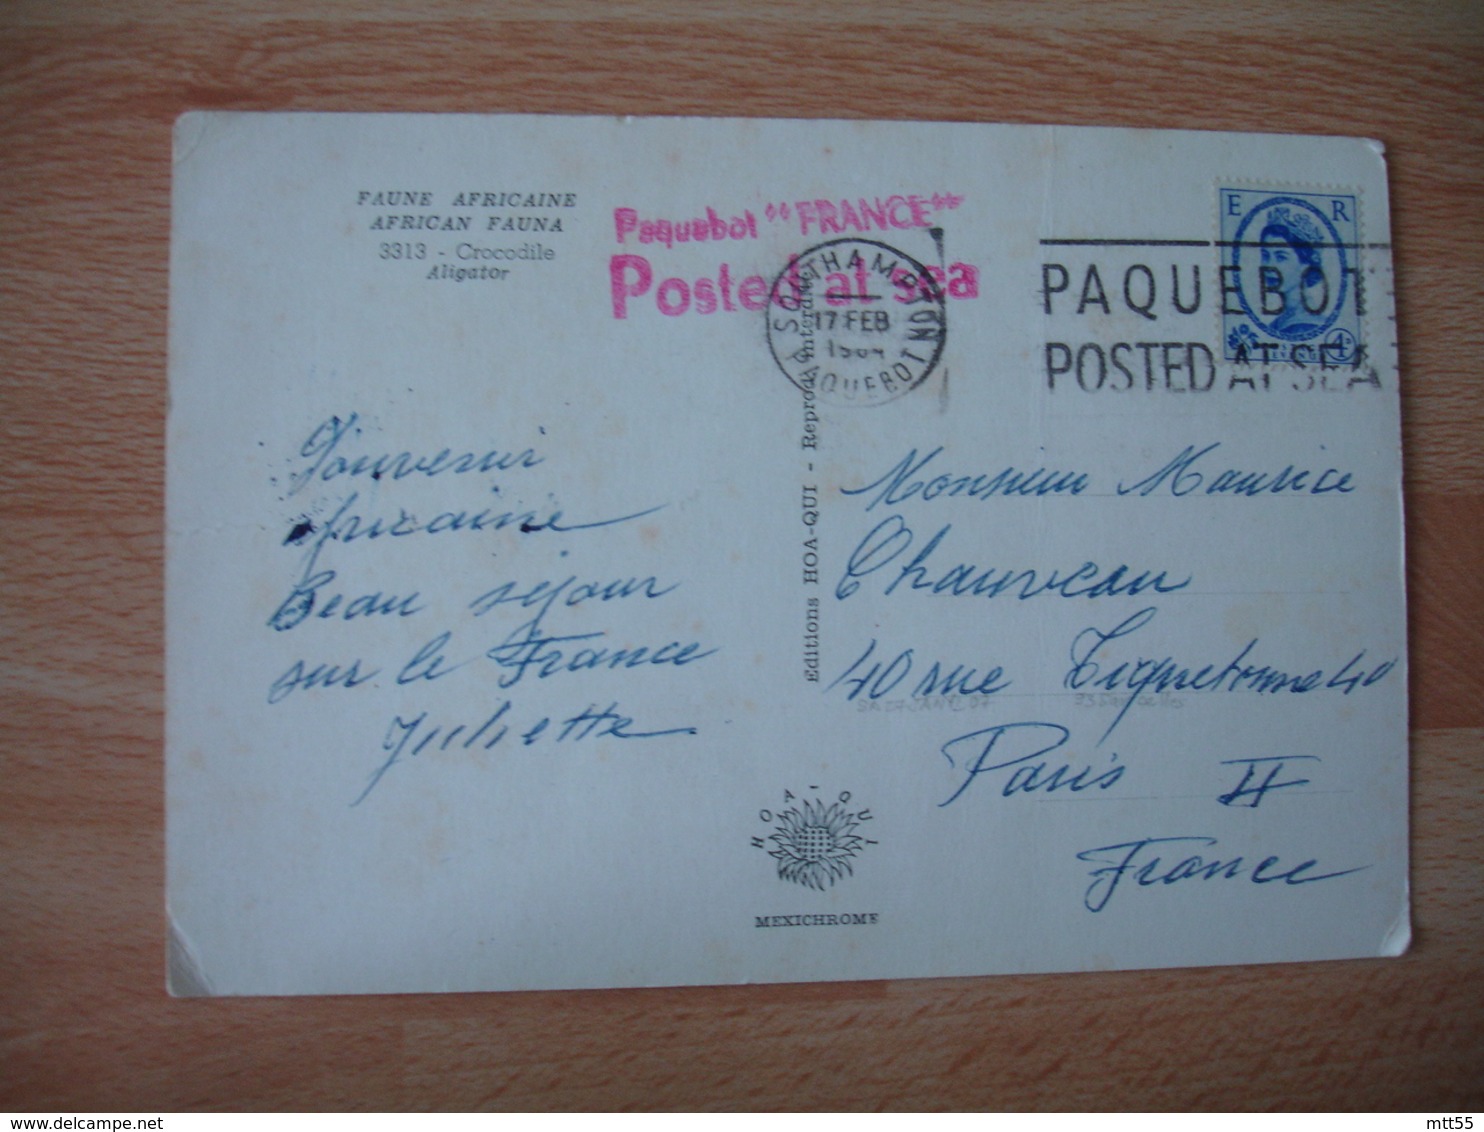 FAUNE AFRICAINE
AFRICAN FAUNA
3313 - Crocodile
Aligator
Paquebot "FRANCE"
Posted at sea
SOUTHAMPTON
17 FEB
1964
PAQUEBOT
PAQUEBOT
POSTED AT SEA
E R
4D
Souvenir
africaine
Beau séjour
sur le France
Juliette
Editions HOA-QUI - Reprod. interdite
Monsieur Maurice
Chauveau
40 rue Tiquetonne 40
Paris II
France
HOA-QUI
MEXICHROME
mtt55